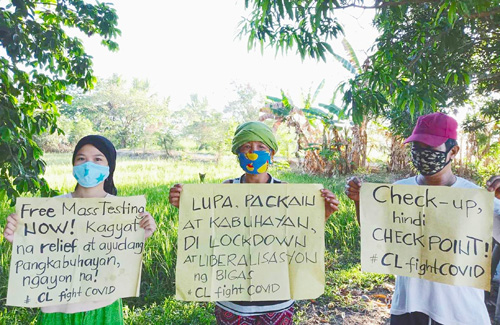 Free Mass Testing
NOW! Kagyat
na relief at ayudang
pangkabuhayan,
ngayon na!
# CL fight COVID
LUPA, PAGKAIN
AT KABUHAYAN,
DI LOCKDOWN
AT LIBERALISASYON
ng BIGAS
# CL fight COVID
Check-up,
hindi
CHECK POINT!
# CL fight COVID